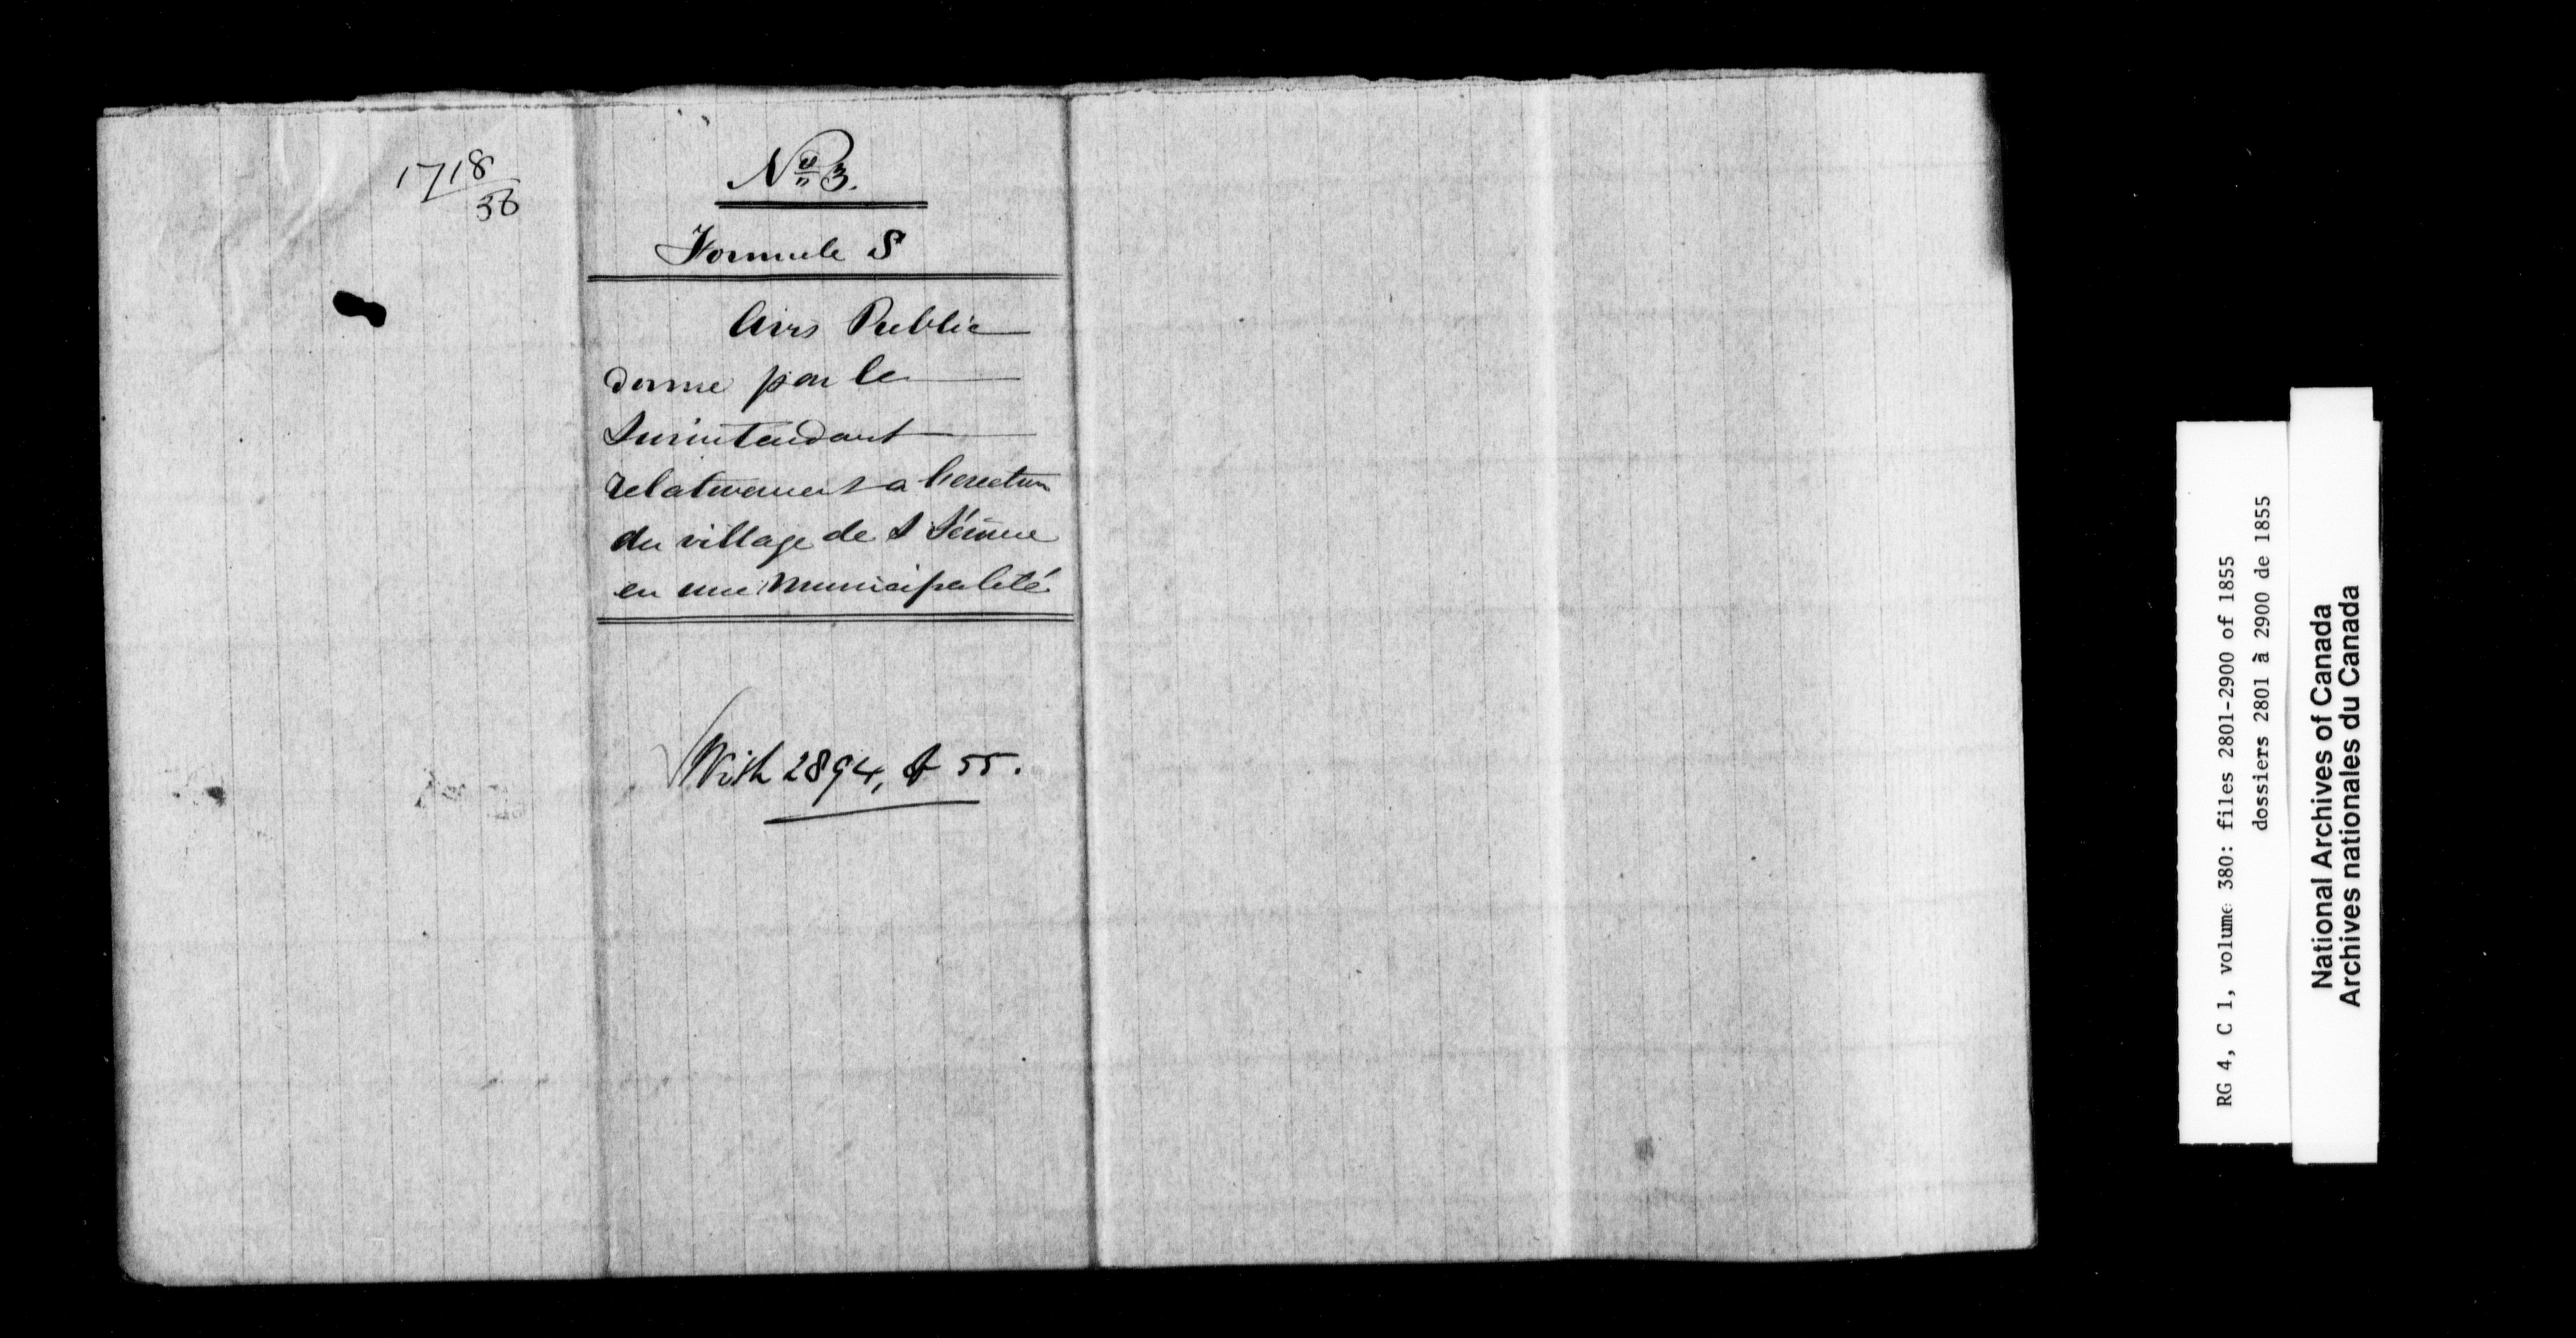 1718
36
No 3.
Formule S
Avis Public
donné par le
Surintendant
relativement a l'erection
du village de S Jérôme
en une Municipalité
With 2894, of 55.
RG 4, C 1, volume 380: files 2801-2900 of 1855
dossiers 2801 à 2900 de 1855
National Archives of Canada
Archives nationales du Canada